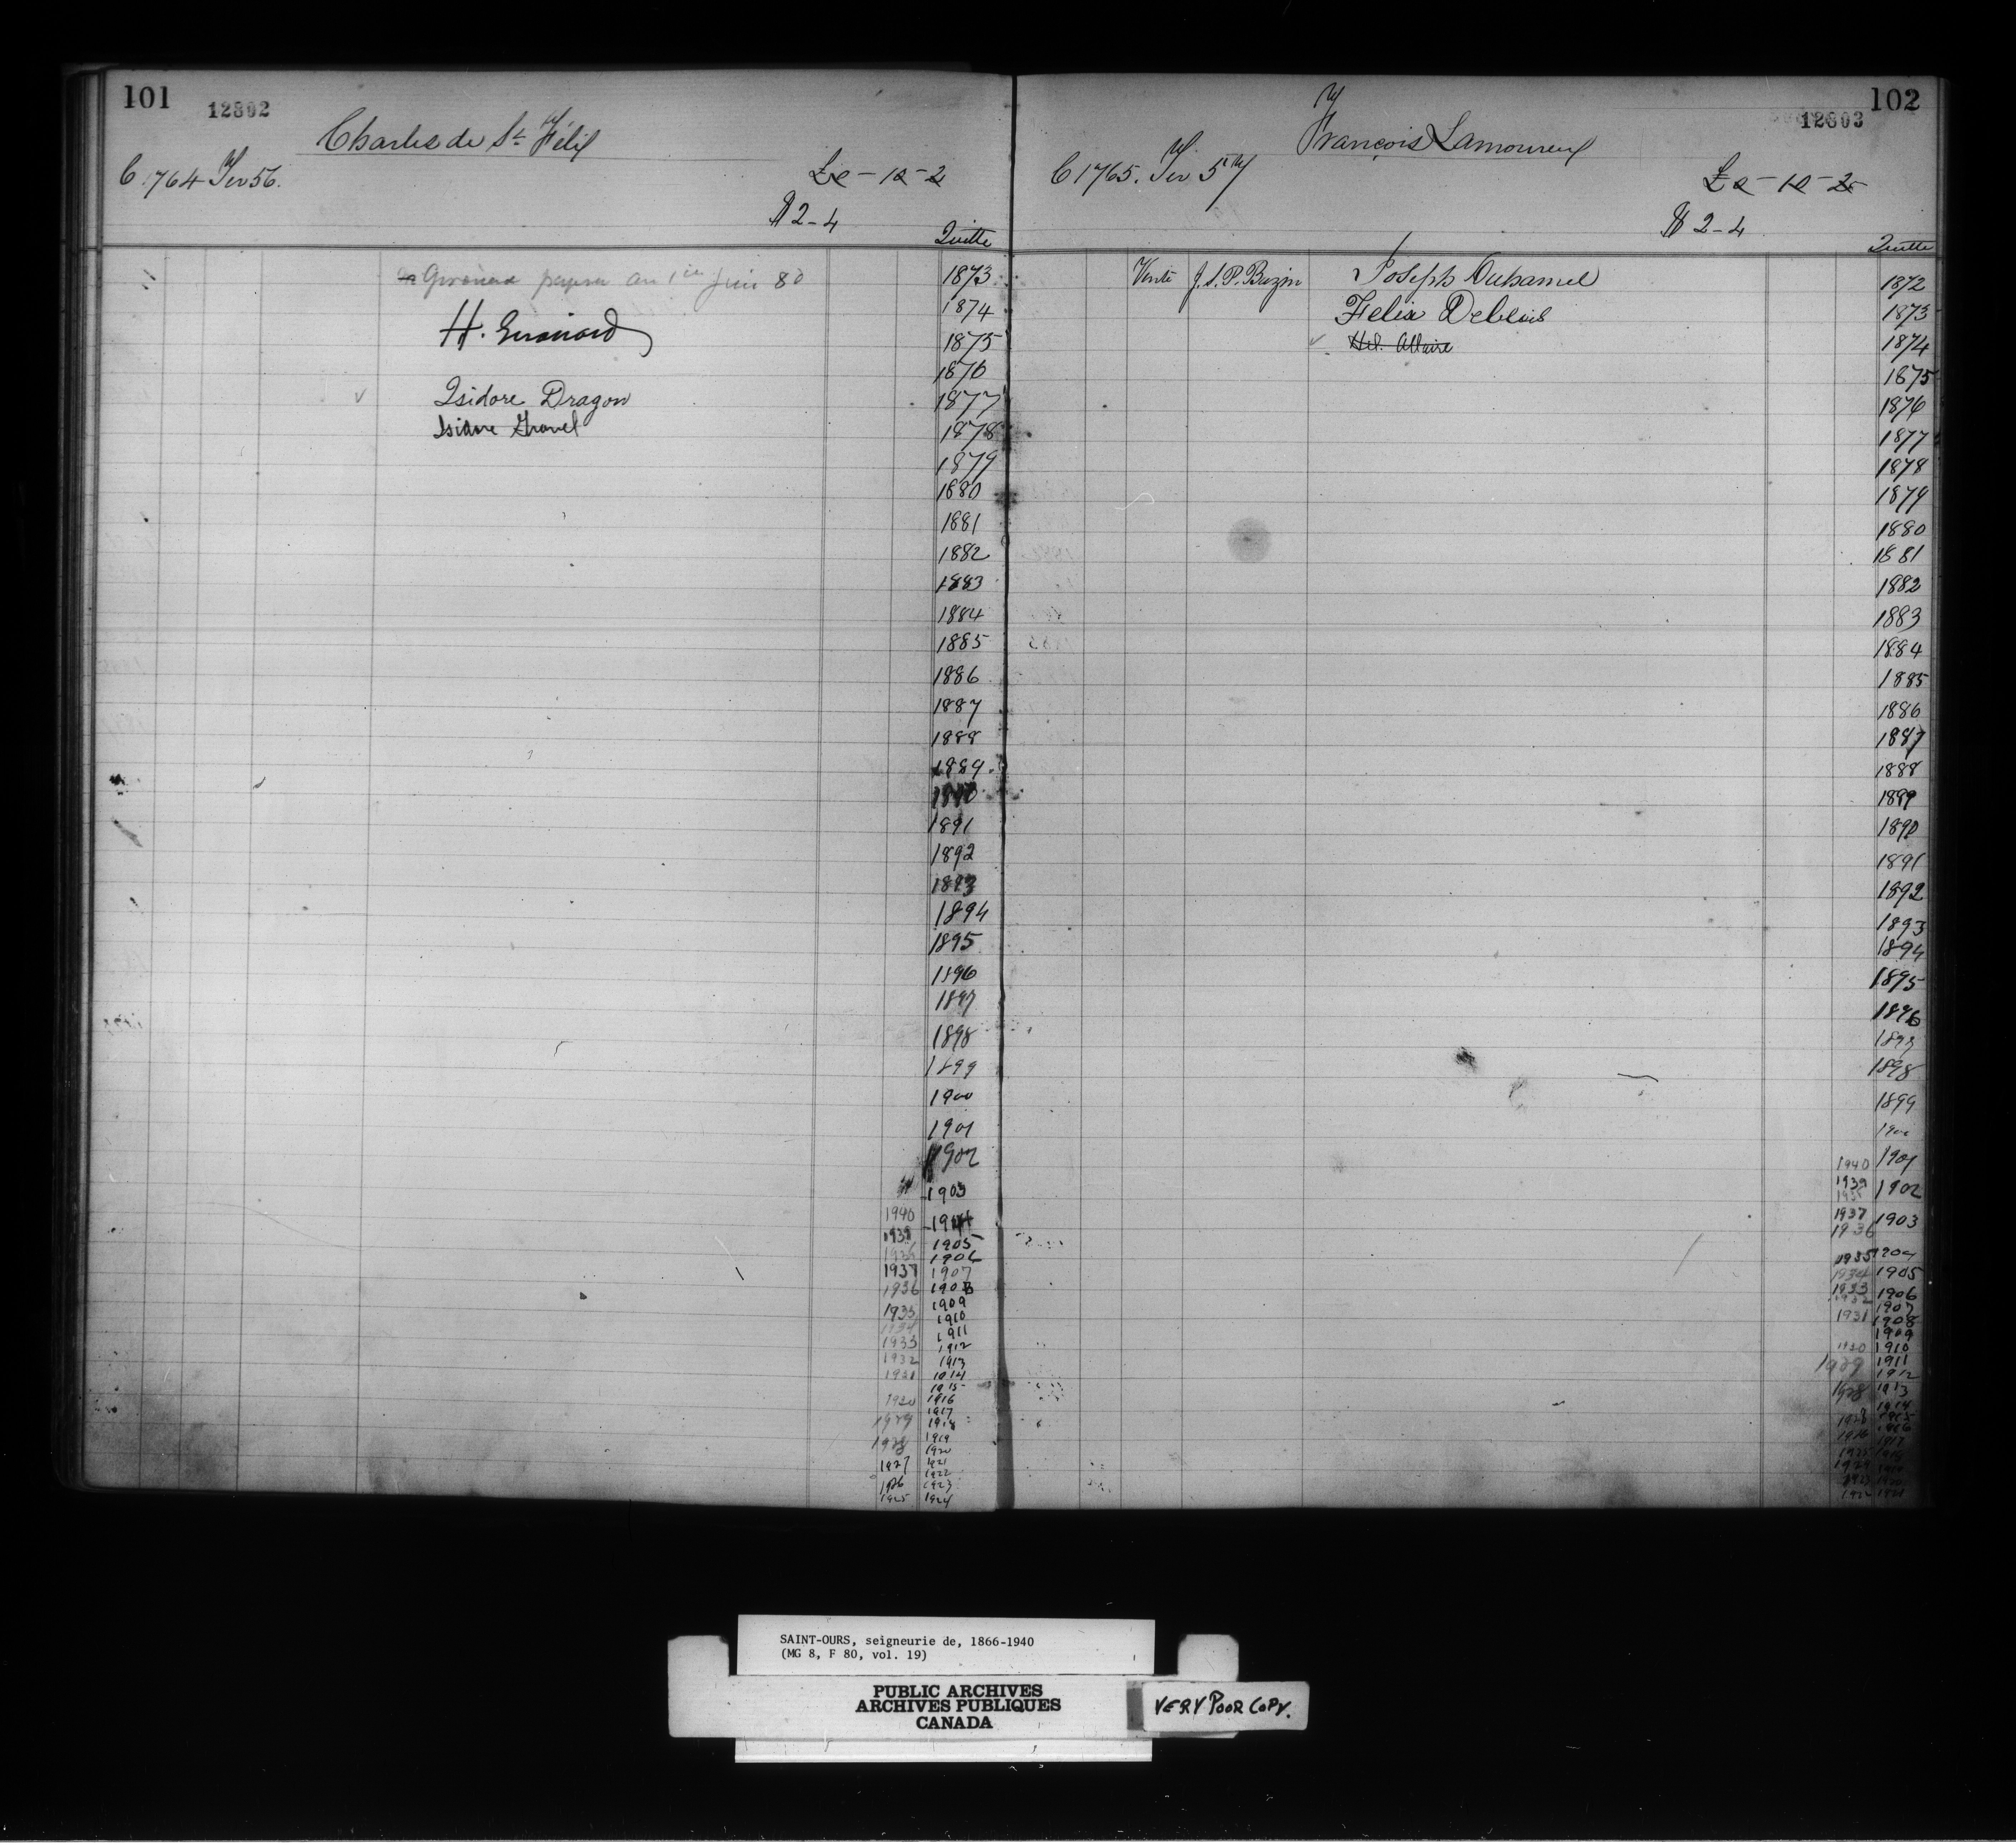 101
12802
Charles de St Félix
C. 1764 Ter 56.
£0-10-2
$2-4
Quitte
payera au 1er Juin 80
H. Girouard
Isidore Dragon
Isidore Gravel
1873
1874
1875
1876
1877
1878
1879
1880
1881
1882
1883
1884
1885
1886
1887
1888
1889
1890
1891
1892
1893
1894
1895
1896
1897
1898
1899
1900
1901
1902
1903
1940 1904
1939 1905
1938 1906
1937 1907
1936 1908
1935 1909
1934 1910
1933 1911
1932 1912
1931 1913
1914
1915
1930 1916
1917
1929 1918
1919
1928 1920
1927 1921
1922
1926 1923
1925 1924
102
12803
François Lamoureux
C 1765. Ter 57
£0-10-2
$2-4
Quitte
Vente J. S. P. Bazin Joseph Duhamel
Felix Deblois
Hil. Allaire
1872
1873
1874
1875
1876
1877
1878
1879
1880
1881
1882
1883
1884
1885
1886
1887
1888
1889
1890
1891
1892
1893
1894
1895
1896
1897
1898
1899
1900
1940 1901
1939 1902
1938
1937 1903
1936
1935 1904
1934 1905
1933 1906
1932 1907
1931 1908
1909
1930 1910
1929 1911
1912
1928 1913
1914
SAINT-OURS, seigneurie de, 1866-1940
(MG 8, F 80, vol. 19)
PUBLIC ARCHIVES
ARCHIVES PUBLIQUES
CANADA
VERY POOR COPY.